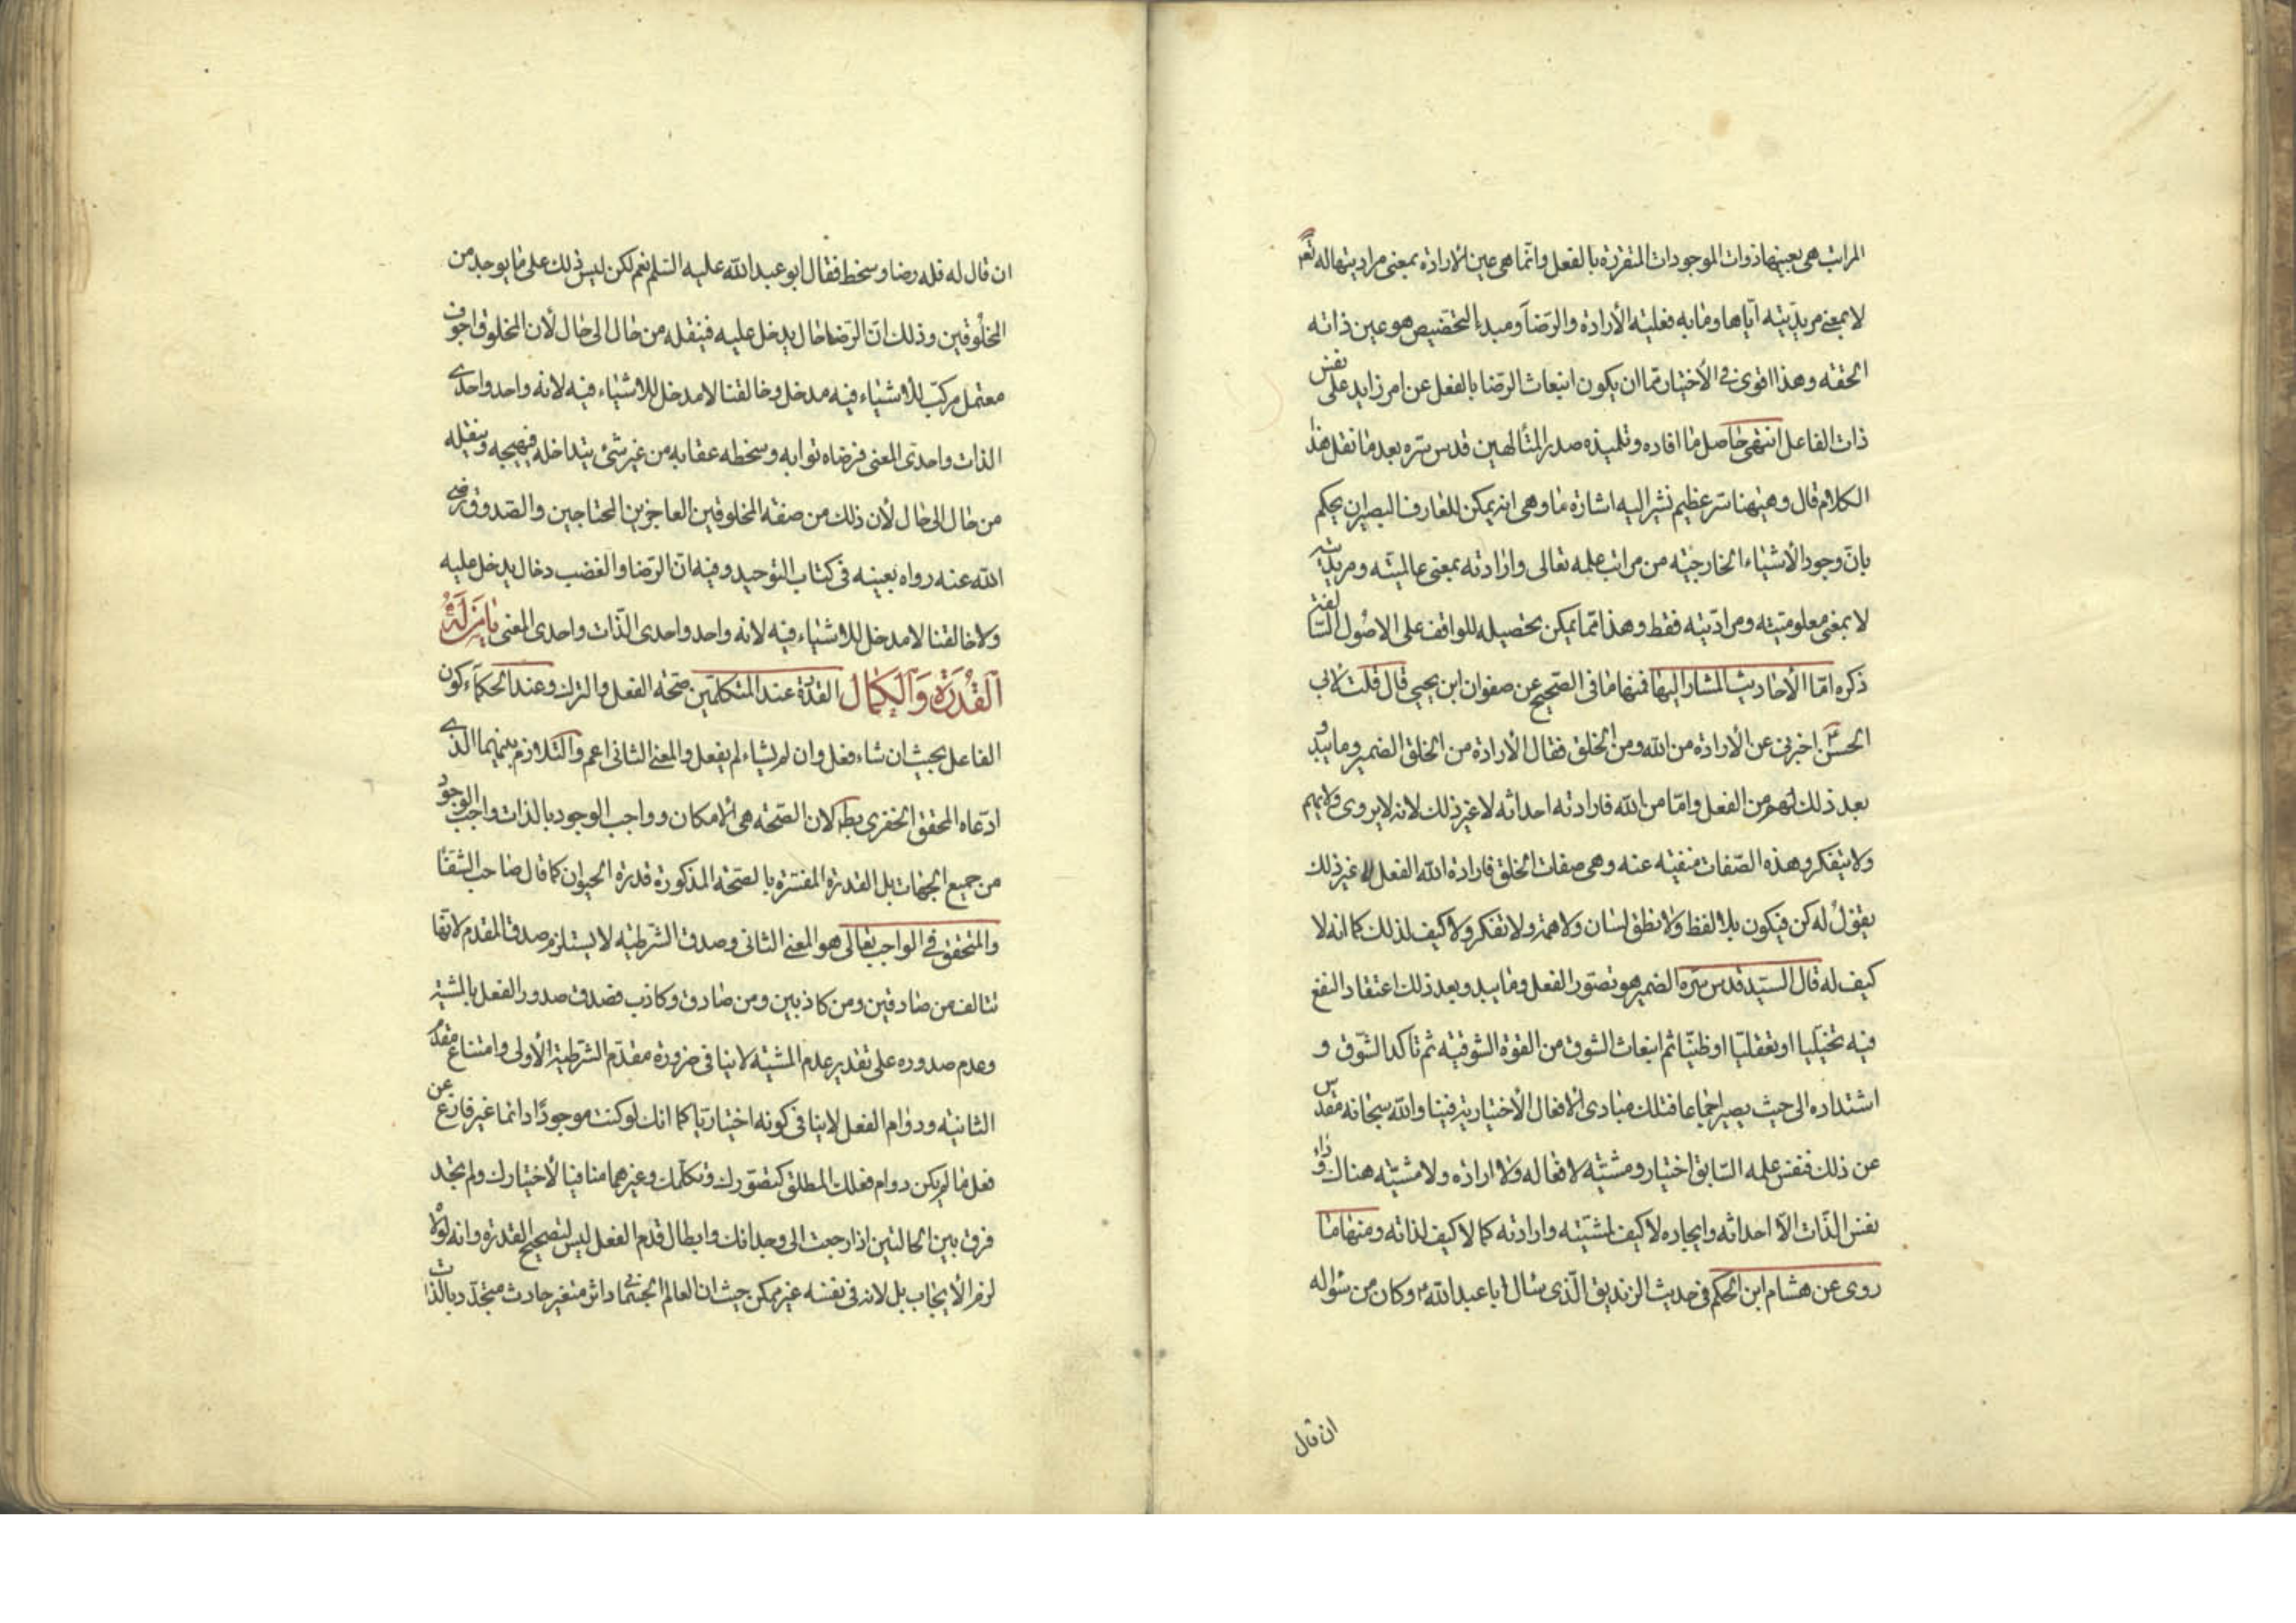 المراتب هى بعينها ذوات الموجودات المتقررة بالفعل وانما هى عين الأرادة بمعنى مراديتها له تعم
لا بمعنى مريديته اياها وما به فعليه الأرادة والرضا ومبدء التخصيص هو عين ذاته
الحقه وهذا اقوى فى الأختيار مما ان يكون انبعاث الرضا بالفعل عن امر زايد على نفس
ذات الفاعل انتهى حاصل ما افاده وتلميذه صدر المتألهين قدس سره بعد ما نقل هذا
الكلام قال وهيهنا سر عظيم نشير اليه اشارة ما وهى انه يمكن للعارف البصير ان يحكم
بان وجود الأشياء الخارجيه من مراتب علمه تعالى وارادته بمعنى عالميته ومريديته
لا بمعنى معلوميته ومراديته فقط وهذا مما يمكن تحصيله للواقف على الاصول السالفة
ذكره اما الأحاديث المشار اليها فمنها ما فى الصحيح عن صفوان ابن يحيى قال قلت لابى
الحسن ع اخبرنى عن الأرادة من الله ومن الخلق فقال الأرادة من الخلق الضمير وما يبدو
بعد ذلك لهم من الفعل واما من الله فارادته احداثه لا غير ذلك لانه لا يروى ولا يهم
ولا يتفكر وهذه الصفات منفيه عنه وهى صفات الخلق فارادة الله الفعل لا غير ذلك
يقول له كن فيكون بلا لفظ ولا نطق لسان ولا همة ولا تفكر ولا كيف لذلك كما انه لا
كيف له قال السيد قدس سره الضمير هو تصور الفعل وما يبدو بعد ذلك اعتقاد النفع
فيه تخيليا او تعقليا او ظنيا ثم انبعاث الشوق من القوة الشوقيه ثم تأكد الشوق و
اشتداده الى حيث يصير اجماعا فتلك مبادى الافعال الأختيارية فينا والله سبحانه مقدس
عن ذلك فنفس علمه السابق اختيار ومشيته لافعاله ولا ارادة ولا مشيته هناك وراء
نفس الذات الا احداثه وايجاده لا كيف لمشيته وارادته كما لا كيف لذاته ومنها ما
روى عن هشام ابن الحكم فى حديث الزنديق الذى سئال ابا عبد الله ع وكان من سؤاله
ان قال
ان قال له فله رضا وسخط فقال ابو عبد الله عليه السلم نعم لكن ليس ذلك على ما يوجد من
المخلوقين وذلك ان الرضا حال يدخل عليه فينقله من حال الى حال لأن المخلوق اجوف
معتمل مركب للأشياء فيه مدخل وخالقنا لا مدخل للاشياء فيه لانه واحد واحدى
الذات واحدى المعنى فرضاه ثوابه وسخطه عقابه من غير شئ يتداخله فيهيجه وينقله
من حال الى حال لأن ذلك من صفه المخلوقين العاجزين المحتاجين والصدوق رضى
الله عنه رواه بعينه فى كتاب التوحيد وفيه ان الرضا والغضب دخال يدخل عليه
ولا خالقنا لا مدخل للاشياء فيه لانه واحد واحدى الذات واحدى المعنى يا من له
القدرة والكمال القدرة عند المتكلمين صحه الفعل والترك وعند الحكماء كون
الفاعل بحيث ان شاء فعل وان لم يشاء لم يفعل والمعنى الثانى اعم والتلازم بينهما الذى
ادعاه المحقق الخفرى بط لان الصحه هى الامكان وواجب الوجود بالذات واجب الوجود
من جميع الجهات بل القدرة المفسرة بالصحه المذكورة قدرة الحيوان كما قال صاحب الشفا
والمتحقق فى الواجب تعالى هو المعنى الثانى وصدق الشرطيه لا يستلزم صدق المقدم لانها
تتالف من صادقين ومن كاذبين ومن صادق وكاذب فصدق صدور الفعل بالمشية
وعدم صدوره على تقدير عدم المشيه لا ينافى ضرورة مقدم الشرطية الأولى وامتناع مقدم
الثانيه ودوام الفعل لا ينافى كونه اختياريا كما انك لو كنت موجودا دائما غير فارغ عن
فعل ما لم يكن دوام فعلك المطلق كتصورك وتكلمك وغيرهما منافيا لأختيارك ولم تجد
فرق بين الحالتين اذا رجعت الى وجدانك وابطال قدم الفعل ليس لتصحيح القدرة وانه لولا
لزم الأيجاب بل لانه فى نفسه غير ممكن حيث ان العالم الجسمانى داثر متغير حادث متجدد بالذات